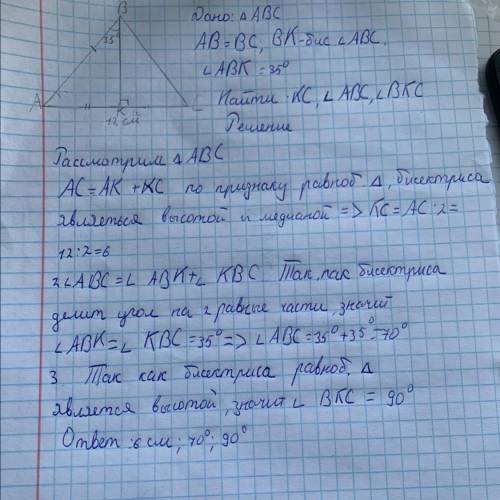 B
35°
A
K
C
12 см
Дано: △ABC
AB=BC, BK-бис ∠ABC.
∠ABK=35°
Найти: KC, ∠ABC, ∠BKC
Решение
Рассмотрим △ABC
AC=AK+KC по признаку равноб △, бисектриса
являеться высотой и медианой => KC=AC:2=
12:2=6
2 ∠ABC=∠ABK+∠KBC Так как бисектриса
делит угол на 2 равные части, значит
∠ABK=∠KBC=35°=>∠ABC=35°+35°=70°
3. Так как бисектриса равноб. △
является высотой, значит ∠BKC=90°
Ответ: 6 см; 70°; 90°